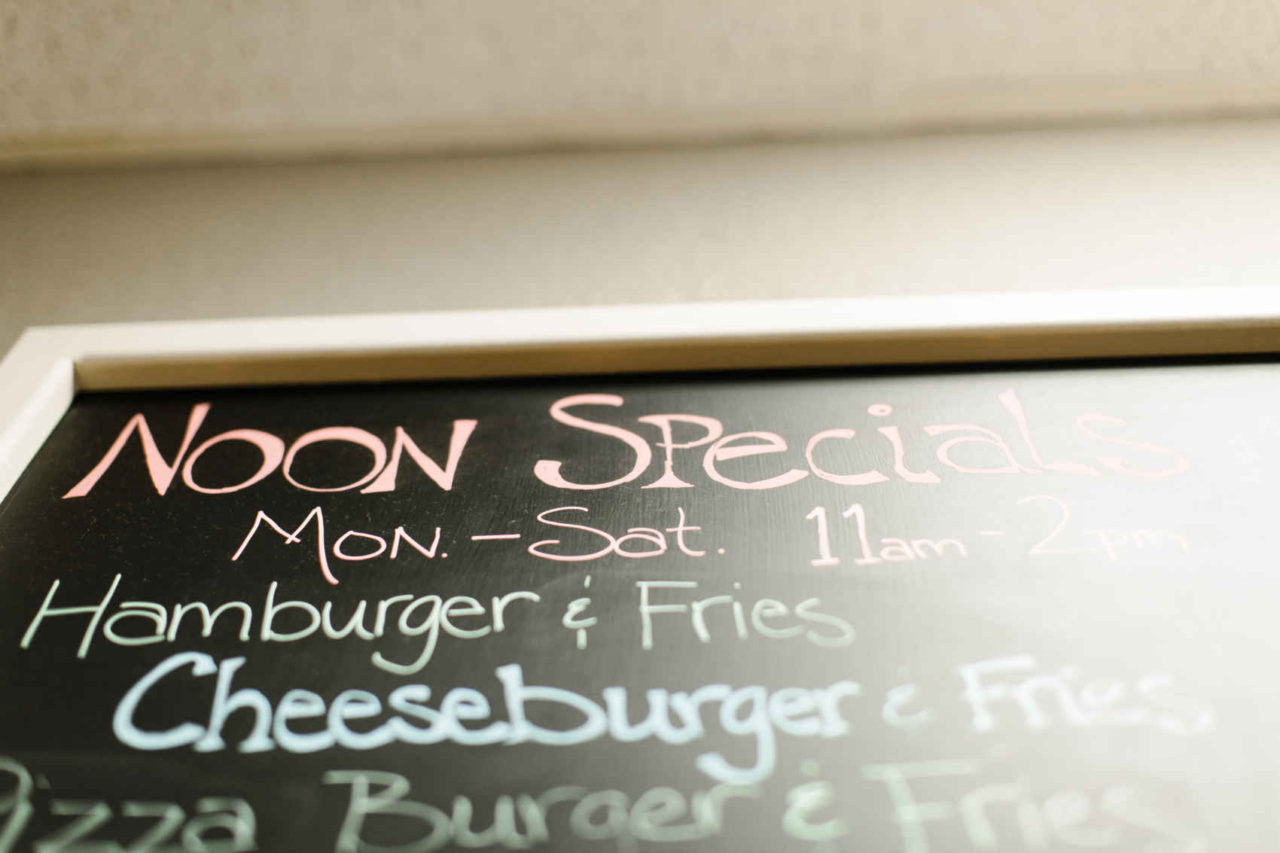 Noon Specials
Mon. - Sat. 11am - 2pm
Hamburger & Fries
Cheeseburger & Fries
Pizza Burger & Fries